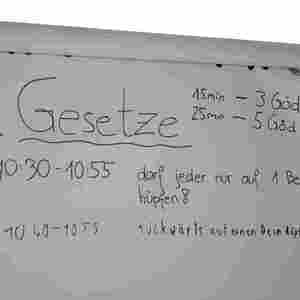 Gesetze
15min – 3 Göd
25min – 5 Göd
10:30-10:55 darf jeder nur auf 1 Be
hüpfen!
10:40-10:55 rückwärts auf einen Bein